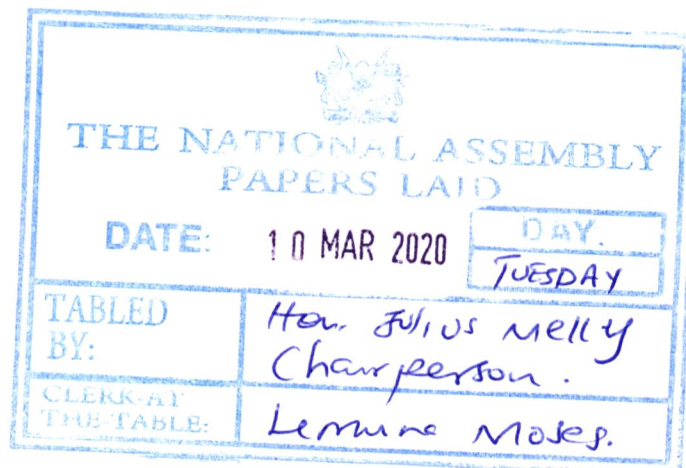 THE NATIONAL ASSEMBLY
PAPERS LAID
DATE: 10 MAR 2020
DAY.
TUESDAY
TABLED
BY:
Hon. Julius Melly
Chairperson.
CLERK-AT
THE-TABLE:
Lemuna Moses.